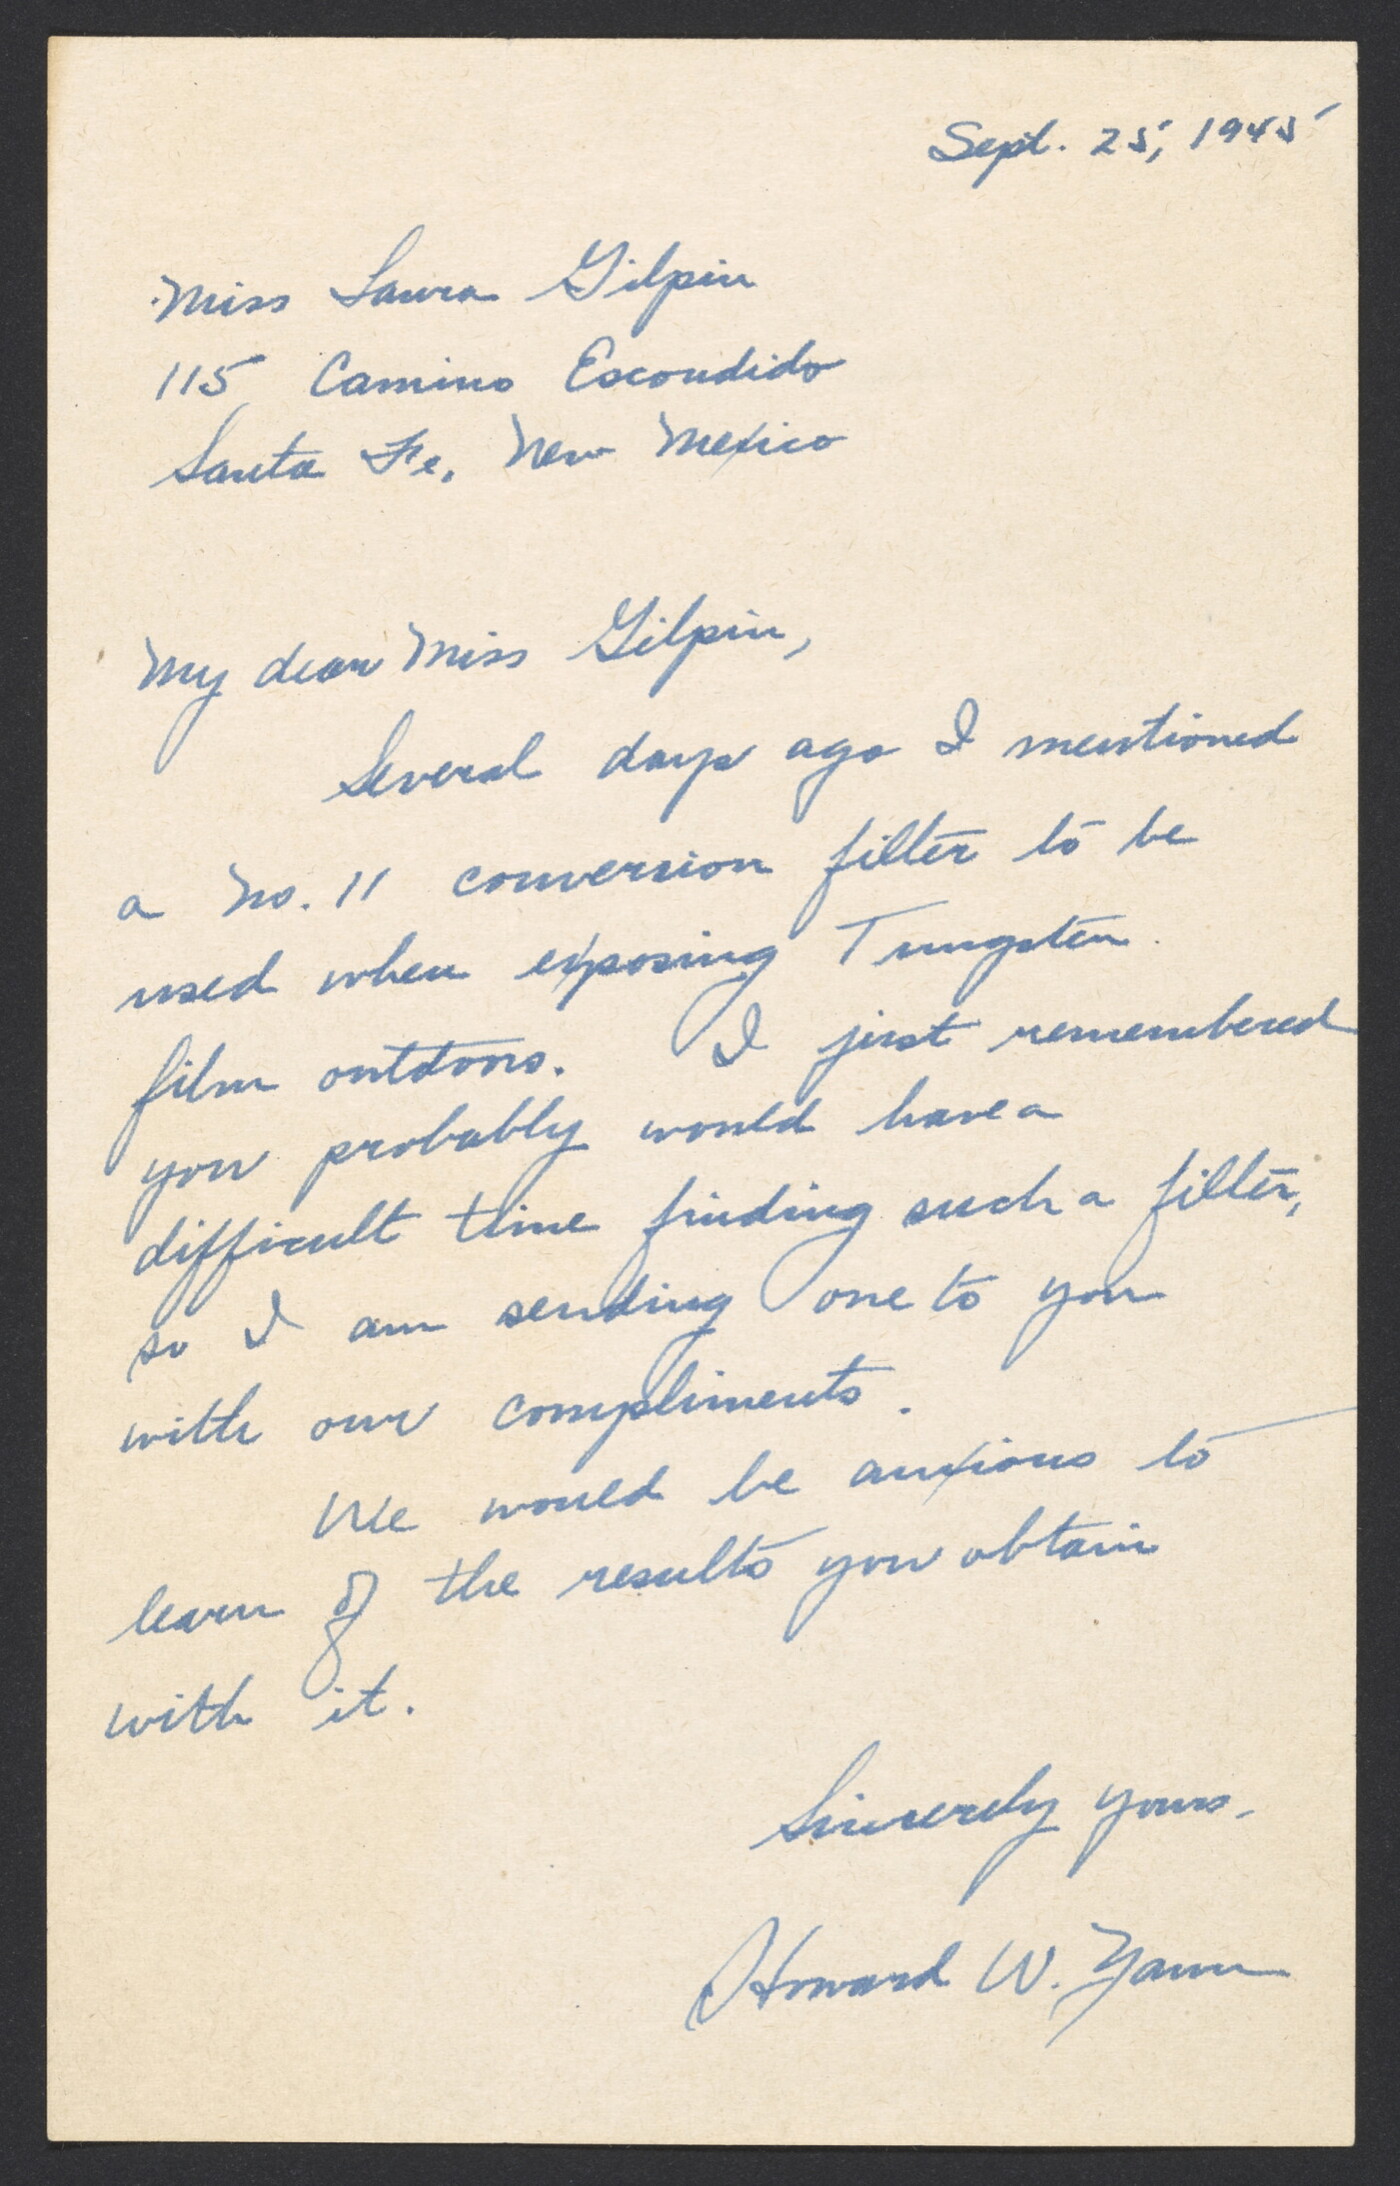 Sept. 25, 1945
Miss Laura Gilpin
115 Camino Escondido
Santa Fe, New Mexico
My dear Miss Gilpin,
Several days ago I mentioned
a No. 11 conversion filter to be
used when exposing Tungsten
film outdoors. I just remembered
you probably would have a
difficult time finding such a filter,
so I am sending one to you
with our compliments.
We would be anxious to
learn of the results you obtain
with it.
Sincerely yours,
Howard W. Yann